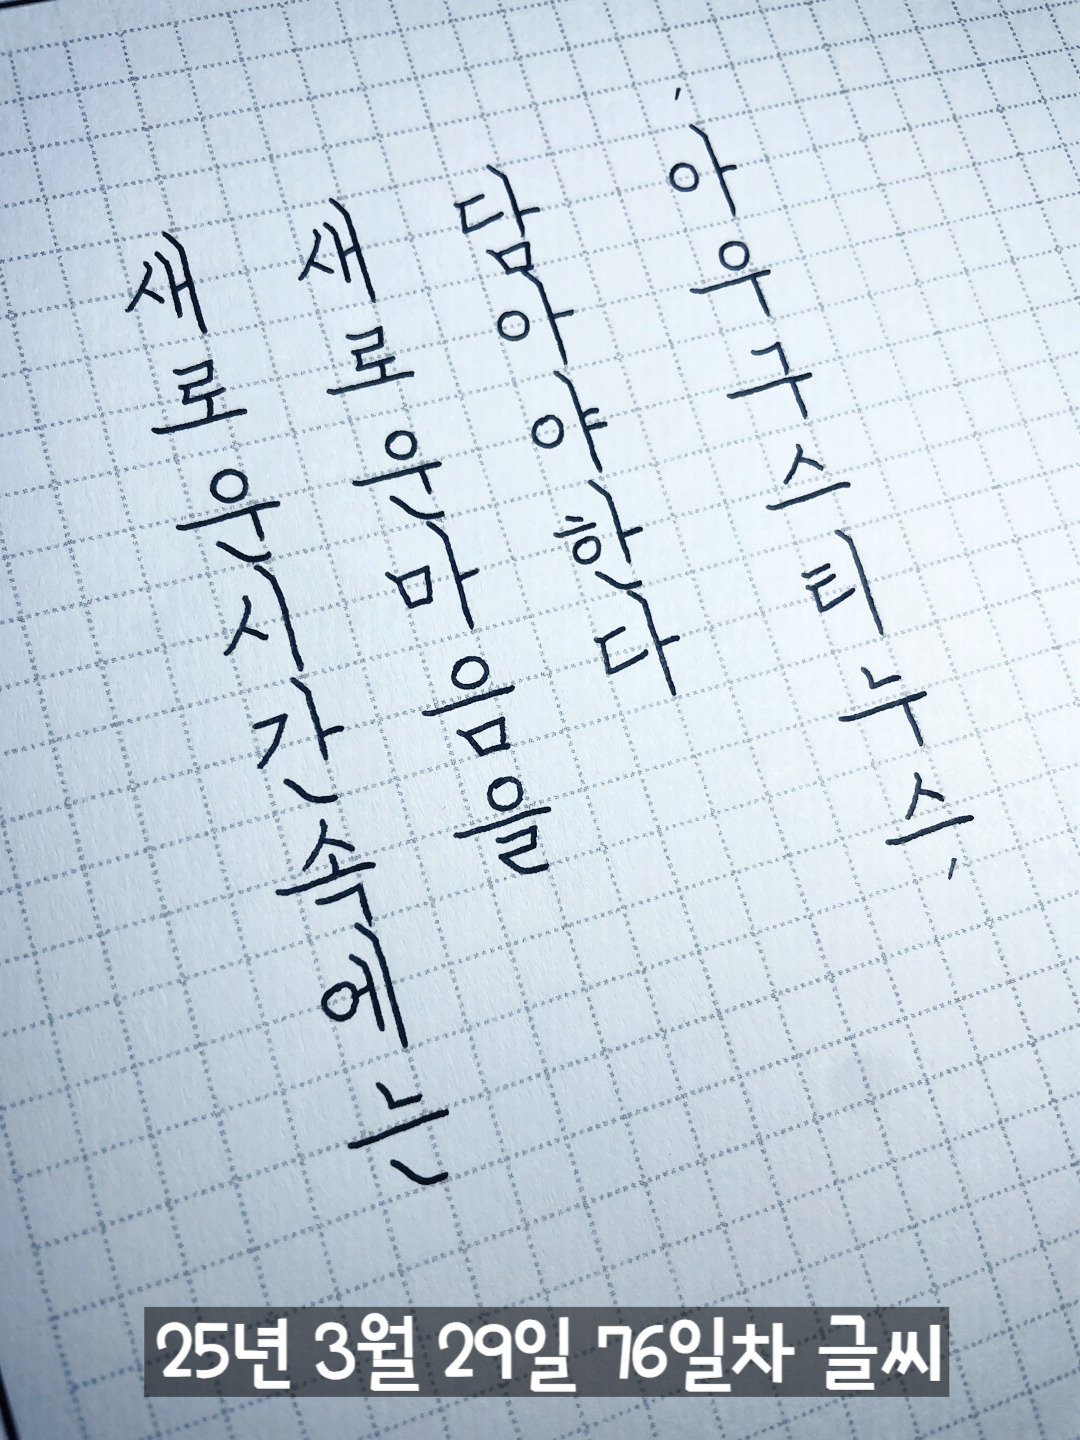 새로운 시간 속에는
새로운 마음을
담아야 한다
'아우구스티누스'
25년 3월 29일 76일차 글씨